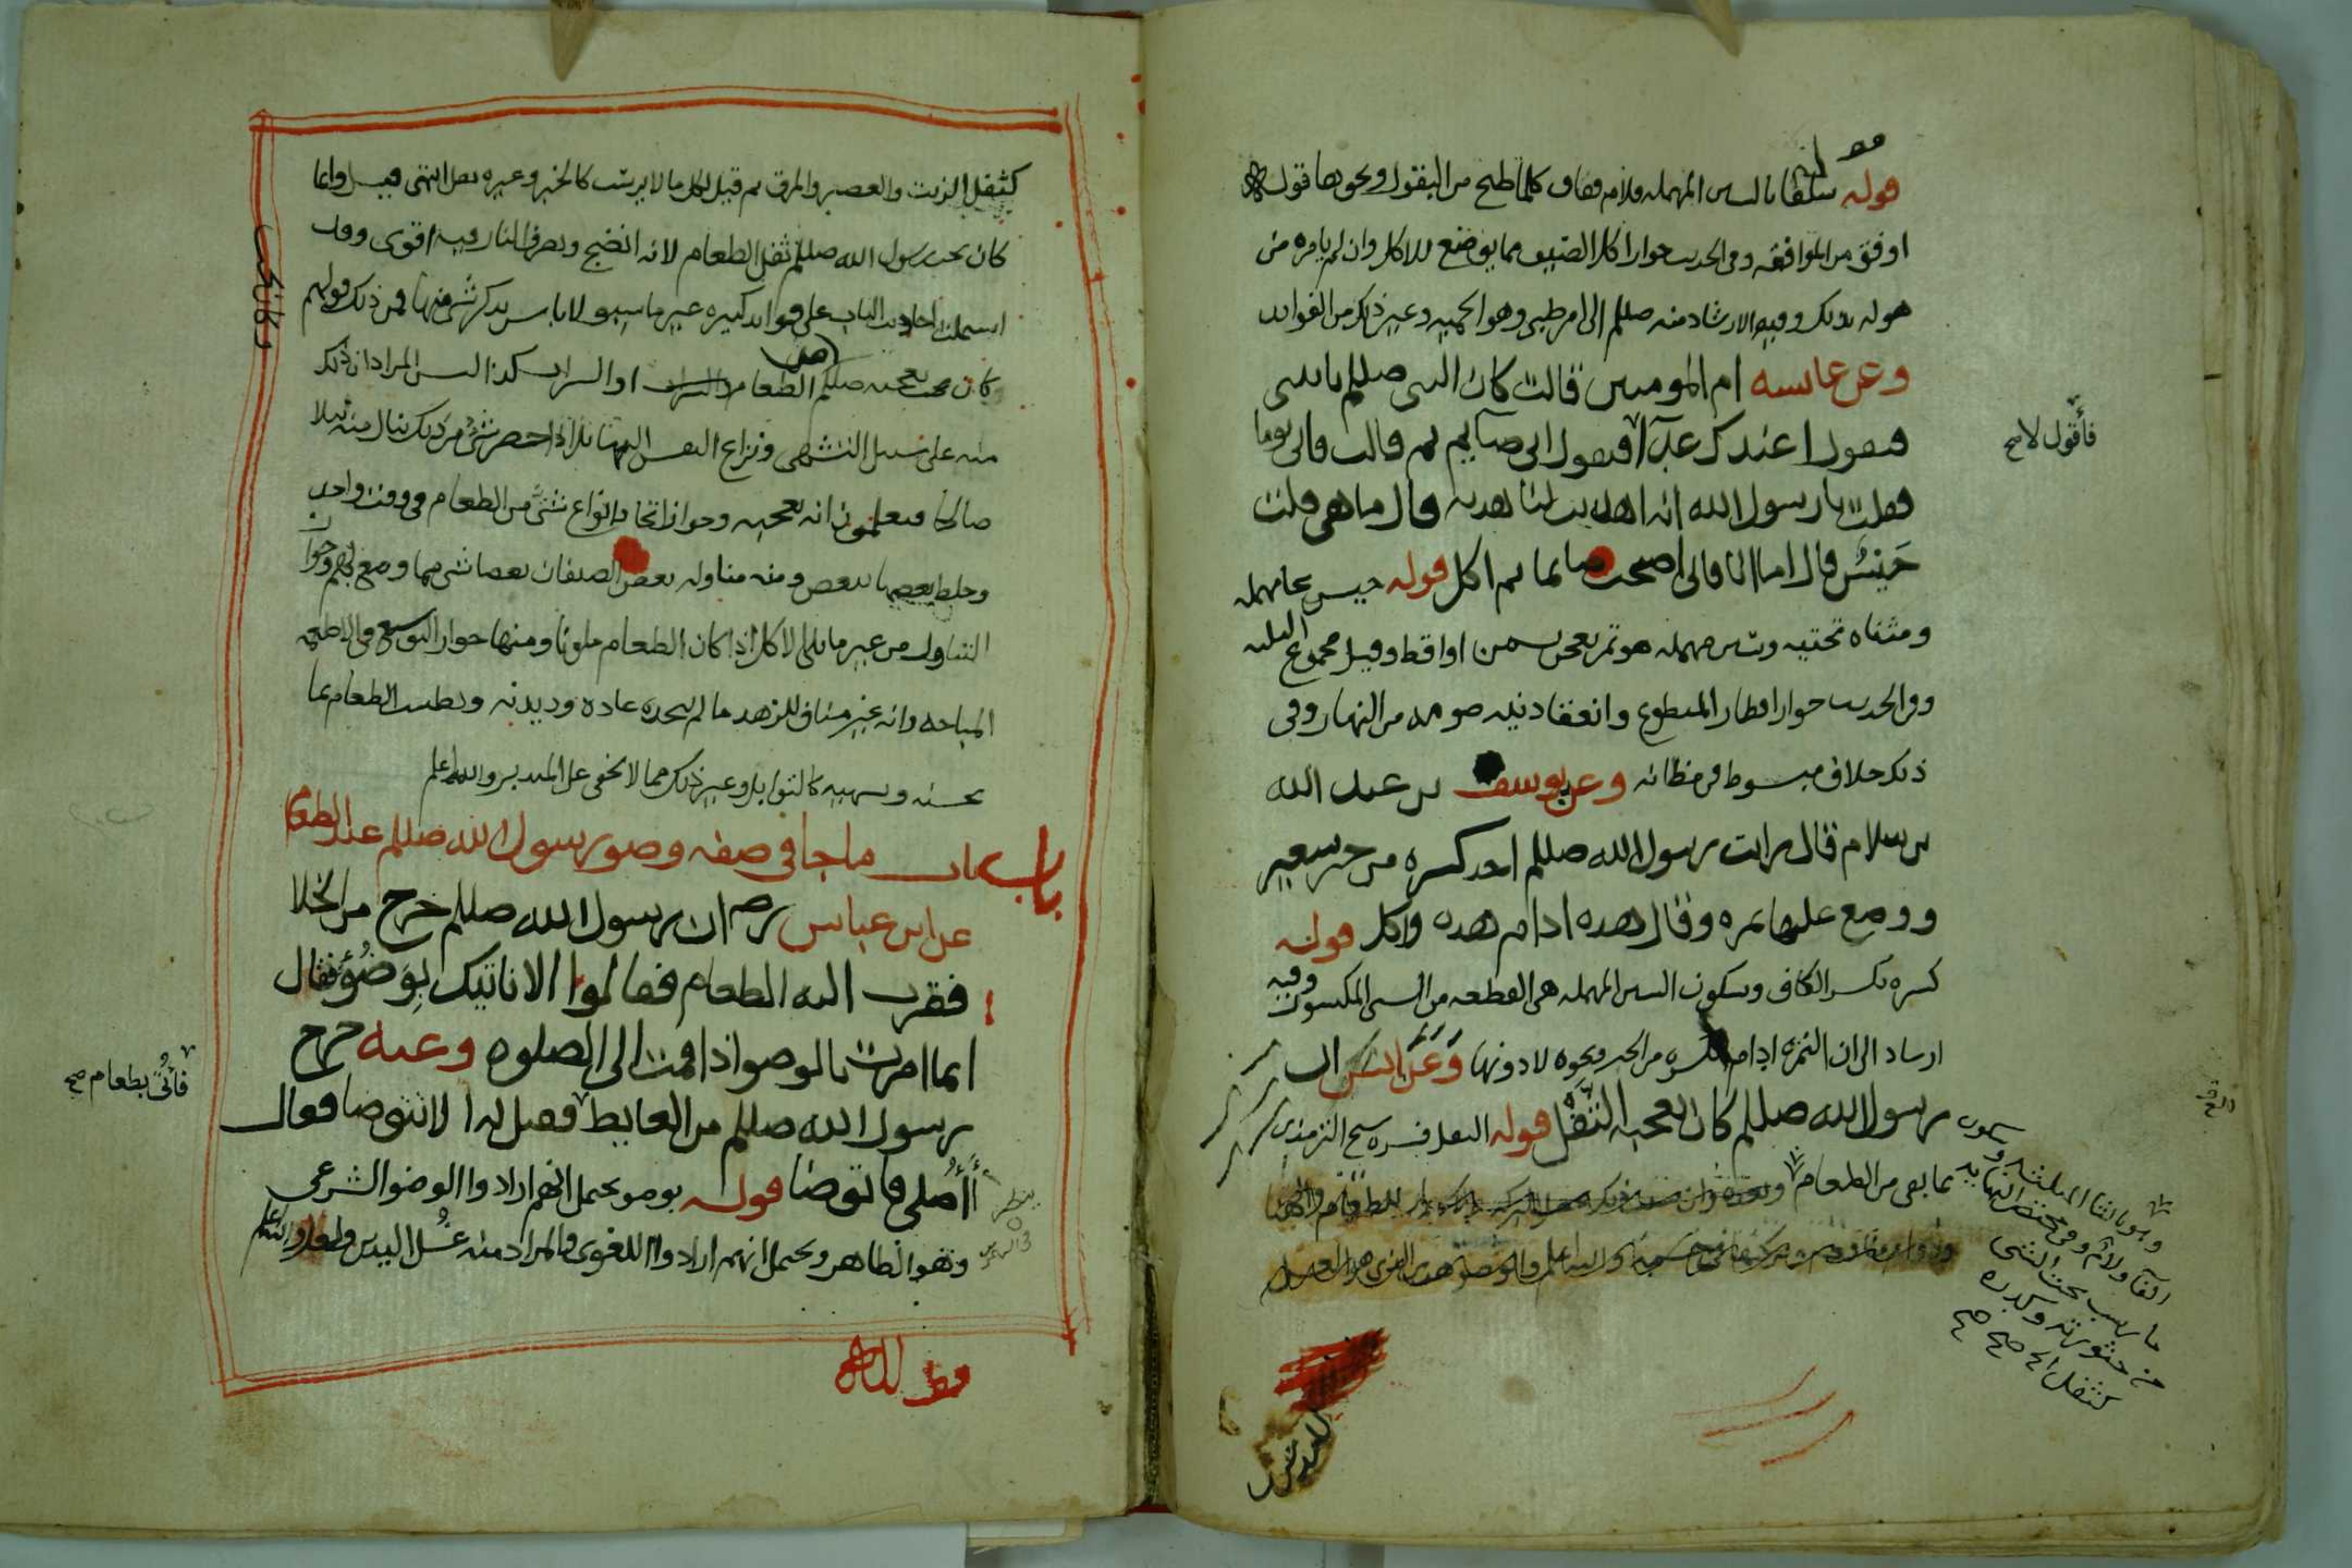 قوله سلقا بالسين المهمله ولام وقاف كلما طبخ من البقول ونحوها قوله
اوفق من الموافقه وفي الحديث جواز اكل الضيف مما يوضع للاكل وان لم يامره من
هو له بذلك وفيه الارشاد منه صللم الى امر طبي وهو الحميه وغير ذلك من الفوايد
وعن عايسه ام المومنين قالت كان النبي صللم ياتيني
فيقول اعندك غدآ فيقول اني صآيم ثم قالت فاتى يوما
فأقول لا صح
فقلت يا رسول الله انه اهديت لنا هديه قال ما هي قلت
حَيْسٌ قال اما انا فاني اصبحت صايما ثم اكل قوله حيس بحا مهمله
ومثناه تحتيه وسين مهمله هو تمر يعجن بسمن او اقط وقيل مجموع الثلثه
وفي الحديث جواز افطار المتطوع وانعقاد نيه صومه من النهار وفي
ذلك خلاف مبسوط في مظانه وعن يوسف بن عبد الله
بن سلام قال رايت رسول الله صللم اخذ كسره من خبز شعير
ووضع عليها تمره وقال هذه ادام هذه واكل قوله
كسره بكسر الكاف وسكون السين المهمله هي القطعه من الشي المكسور وفيه
ارشاد الى ان التمره ادام لكسره من الخبز ونحوه لا دونها وَعَنْ انسٍ ان
رسول الله صللم كان يعجبه الثُّفْل قوله الثفل فسره شيخ الترمذي
بما بقي من الطعام
وهو بالثا المثلثه وسكون
الفآ ولام وفي مختصر النهايه
ما رسب تحت الشي
من خثورته وكدره
كثفل الخ صح صح
كثفل الزيت والعصير والمرق ثم قيل لكل ما لا يشرب كالخبز وغيره ثفل انتهى قيل وانما
كان يحب رسول الله صللم ثفل الطعام لانه انضج وتصرف النار فيه اقوى وقد
اشتملت احاديث الباب على فوايد كثيره غير ما سبق ولا باس بذكر شي منها فمن ذلك قولهم
كان يعجبه صللم الطعام او الشراب كذا ليس المراد ان ذلك
منه على سبيل التشهي ونزاع النفس اليها بل اذا احضر شئ من ذلك ينال منه نيلا
صالحا فيعلمون انه يعجبه وجواز اتخاذ انواع شتى من الطعام في وقت واحد
وخلط بعضها ببعض ومنه مناوله بعض الضيفان بعضا شي مما وضع لهم وجواز
التناول من غير ما يلي الاكل اذا كان الطعام ملونا ومنها جواز التوسع في الاطعمه
المباحه وانه غير مناف للزهد ما لم يتخذه عاده وديدنه وتطييب الطعام بما
يحسنه ويشهيه كالتوابل وغير ذلك مما لا يخفى على المتدبر والله اعلم
باب ما جا في صفه وضو رسول الله صللم عند الطعام
عن ابن عباس رضم ان رسول الله صللم خرج من الخلا
فقرب اليه الطعام فقالوا الا ناتيك بِوَضُوْءٍ فقال
انما امرت بالوضو اذا قمت الى الصلوه وعنه خرج
رسول الله صللم من الغايط فقيل له الا تتوضا فقال
فأُتي بطعام صح
أأُصلي فاتوضا قوله بوضو يحتمل انهم ارادوا الوضو الشرعي
وهو الظاهر ويحتمل انهم ارادوا اللغوي والمراد منه غُسل اليدين والله اعلم